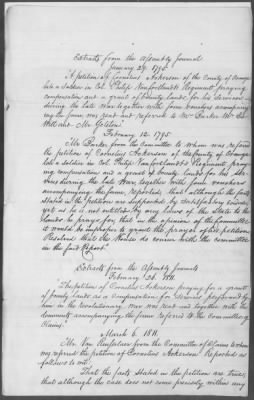 Extracts from the Assembly Journal
January 29. 1795.
"A petition of Cornelius Ackerson of the County of Orange
late a Soldier in Col. Philip VanCortlandt's Regiment, praying
compensation and a grant of bounty lands, for his services
during the late War, together with some vouchers accompany-
ing the same, was read and referred to Mr Barker Mr
Willcocks Mr
February 12. 1795
Mr Barker from the Committee to whom was referred
the petition of Cornelius Ackerson of the County of Orange
late a Soldier in Col. Philip VanCortlandt's Regiment pray-
ing compensation and a grant of bounty lands for his Ser-
vices during the late War, together with some vouchers
accompanying the same, reported, that although the facts
stated in the petition are supported by satisfactory evidence,
yet as he is not entitled by any Laws of this State to the
lands he prays for, that in the opinion of the Committee
it would be improper to grant the prayer of his petition
Resolved that the House do concur with the committee
in the said Report"
Extracts from the Assembly Journals
February 23d. 1811.
"The petition of Cornelius Ackerson praying for a grant
of bounty lands as a compensation for Services performed by
him in the revolutionary war was read and together with the
documents accompanying the same referred to the Committee of
Claims."
March 6. 1811.
Mr. Van Rensselaer from the Committee of Claims to whom
was referred the petition of Cornelius Ackerson Reported as
follows to wit:
That the facts stated in the petition are true;
that although the case does not come precisely within any